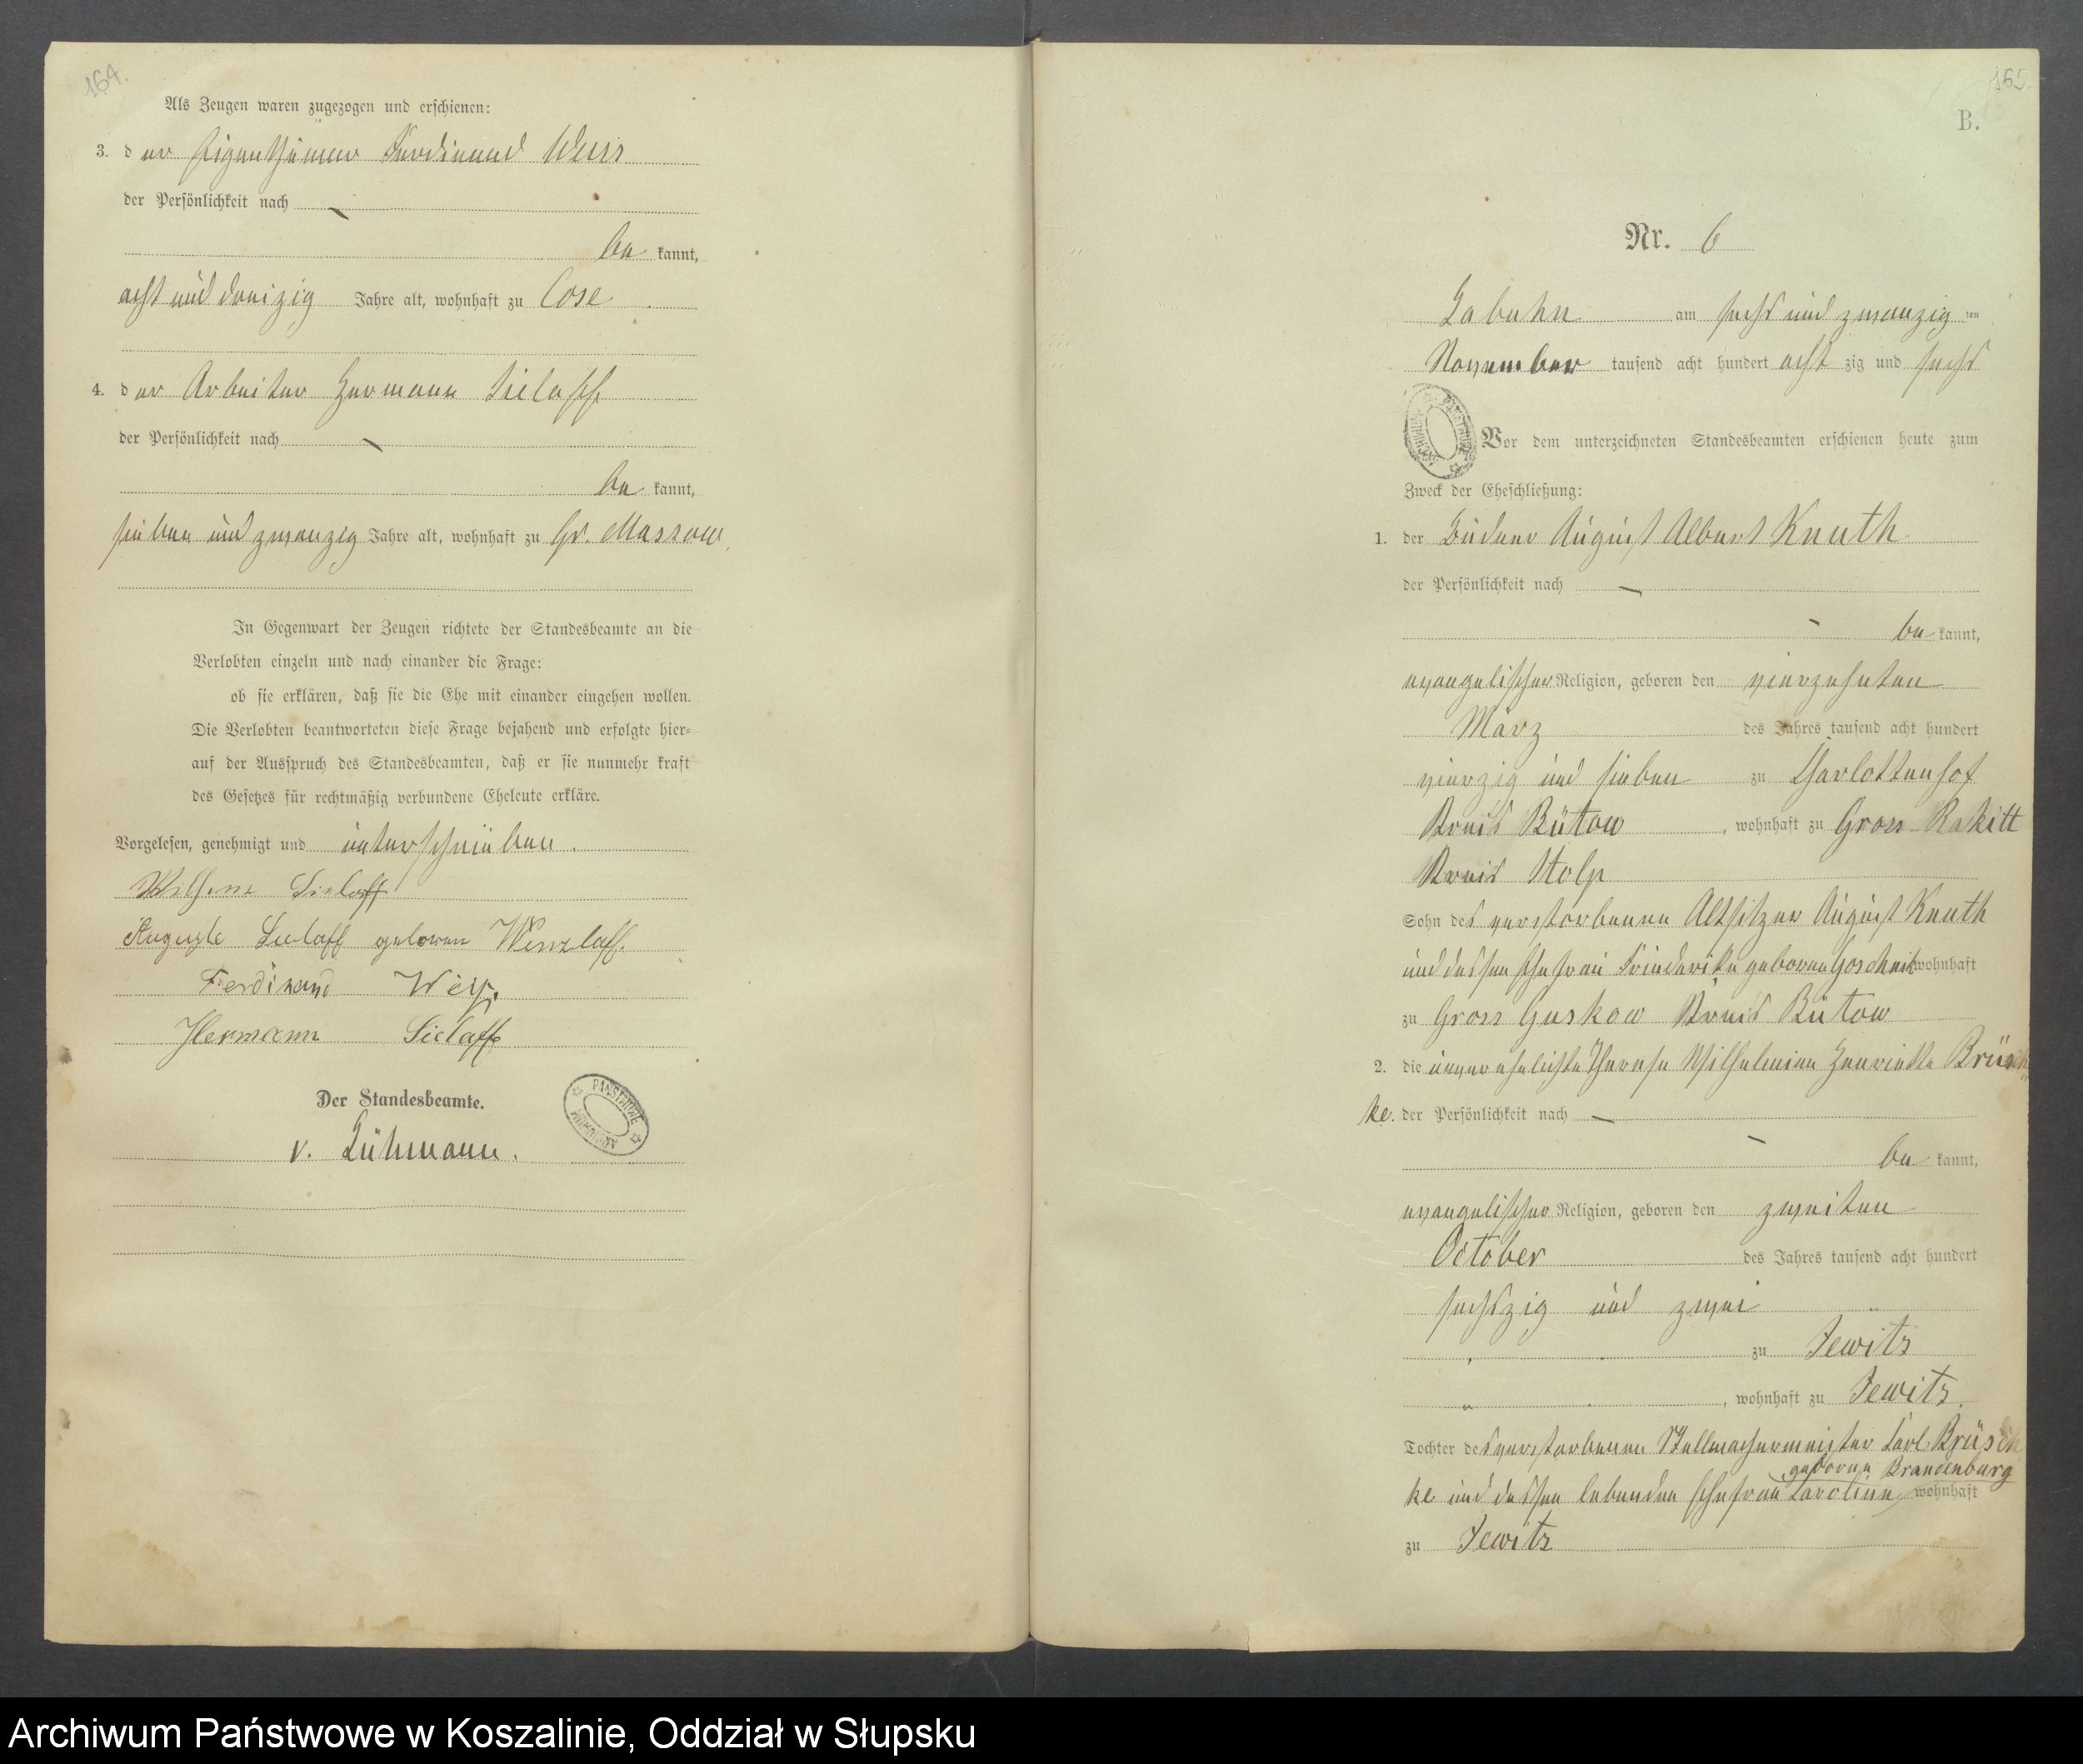 164.
Als Zeugen waren zugezogen und erschienen:
3. der Eigenthümer Ferdinand Weiss
der Persönlichkeit nach
bekannt,
acht und dreizig Jahre alt, wohnhaft zu Cose
4. der Arbeiter Hermann Sielaff
der Persönlichkeit nach
bekannt,
sieben und zwanzig Jahre alt, wohnhaft zu Gr. Massow.
In Gegenwart der Zeugen richtete der Standesbeamte an die
Verlobten einzeln und nach einander die Frage:
ob sie erklären, daß sie die Ehe mit einander eingehen wollen.
Die Verlobten beantworteten diese Frage bejahend und erfolgte hier-
auf der Ausspruch des Standesbeamten, daß er sie nunmehr kraft
des Gesetzes für rechtmäßig verbundene Eheleute erkläre.
Vorgelesen, genehmigt und unterschrieben.
Sielaff
Auguste Sielaff geboren Wenzlaff.
Ferdinand Weiß.
Hermann Sielaff
Der Standesbeamte.
v. Lühmann.
PAŃSTWOWE ARCHIWUM
165.
B.
Nr. 6
Labuhn am sechs und zwanzigten
November tausend acht hundert achtzig und sechs
Vor dem unterzeichneten Standesbeamten erschienen heute zum
Zweck der Eheschließung:
1. der Büdner August Albert Knuth
der Persönlichkeit nach
bekannt,
evangelischer Religion, geboren den vierzehnten
März des Jahres tausend acht hundert
vierzig und sieben zu Charlottenhof
Kreis Bütow, wohnhaft zu Gross-Rakitt
Kreis Stolp
Sohn des verstorbenen Altsitzer August Knuth
und dessen Ehefrau Friederike geboren wohnhaft
zu Gross Guskow Kreis Bütow
2. die unverehelichte Therese Wilhelmine Henriette Brüsch-
ke. der Persönlichkeit nach
bekannt,
evangelischer Religion, geboren den zweiten
October des Jahres tausend acht hundert
sechszig und zwei
zu Jewitz
, wohnhaft zu Jewitz.
Tochter des verstorbenen Stellmachermeister Carl Brüsch
geboren Brandenburg
ke und dessen lebenden Ehefrau Caroline, wohnhaft
zu Jewitz
Archiwum Państwowe w Koszalinie, Oddział w Słupsku